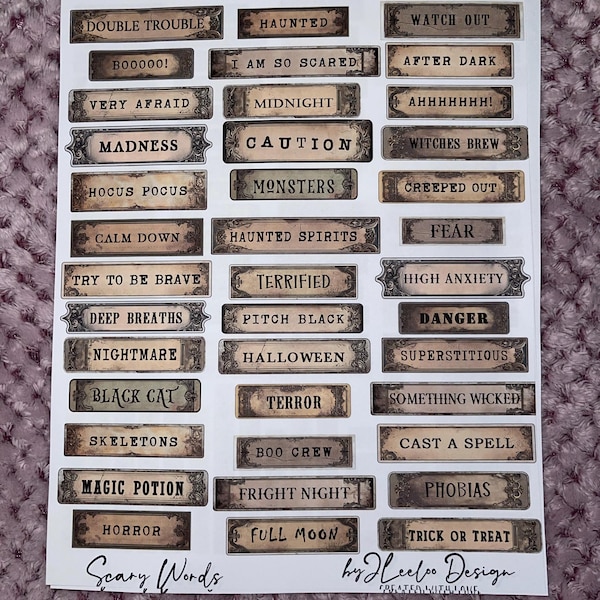 DOUBLE TROUBLE HAUNTED WATCH OUT
BOOOOO! I AM SO SCARED AFTER DARK
VERY AFRAID MIDNIGHT AHHHHHH!
MADNESS CAUTION WITCHES BREW
HOCUS POCUS MONSTERS CREEPED OUT
CALM DOWN HAUNTED SPIRITS FEAR
TRY TO BE BRAVE TERRIFIED HIGH ANXIETY
DEEP BREATHS PITCH BLACK DANGER
NIGHTMARE HALLOWEEN SUPERSTITIOUS
BLACK CAT TERROR SOMETHING WICKED
SKELETONS BOO CREW CAST A SPELL
MAGIC POTION FRIGHT NIGHT PHOBIAS
HORROR FULL MOON TRICK OR TREAT
Scary Words by JLeeloo Design
CREATED WITH LOVE